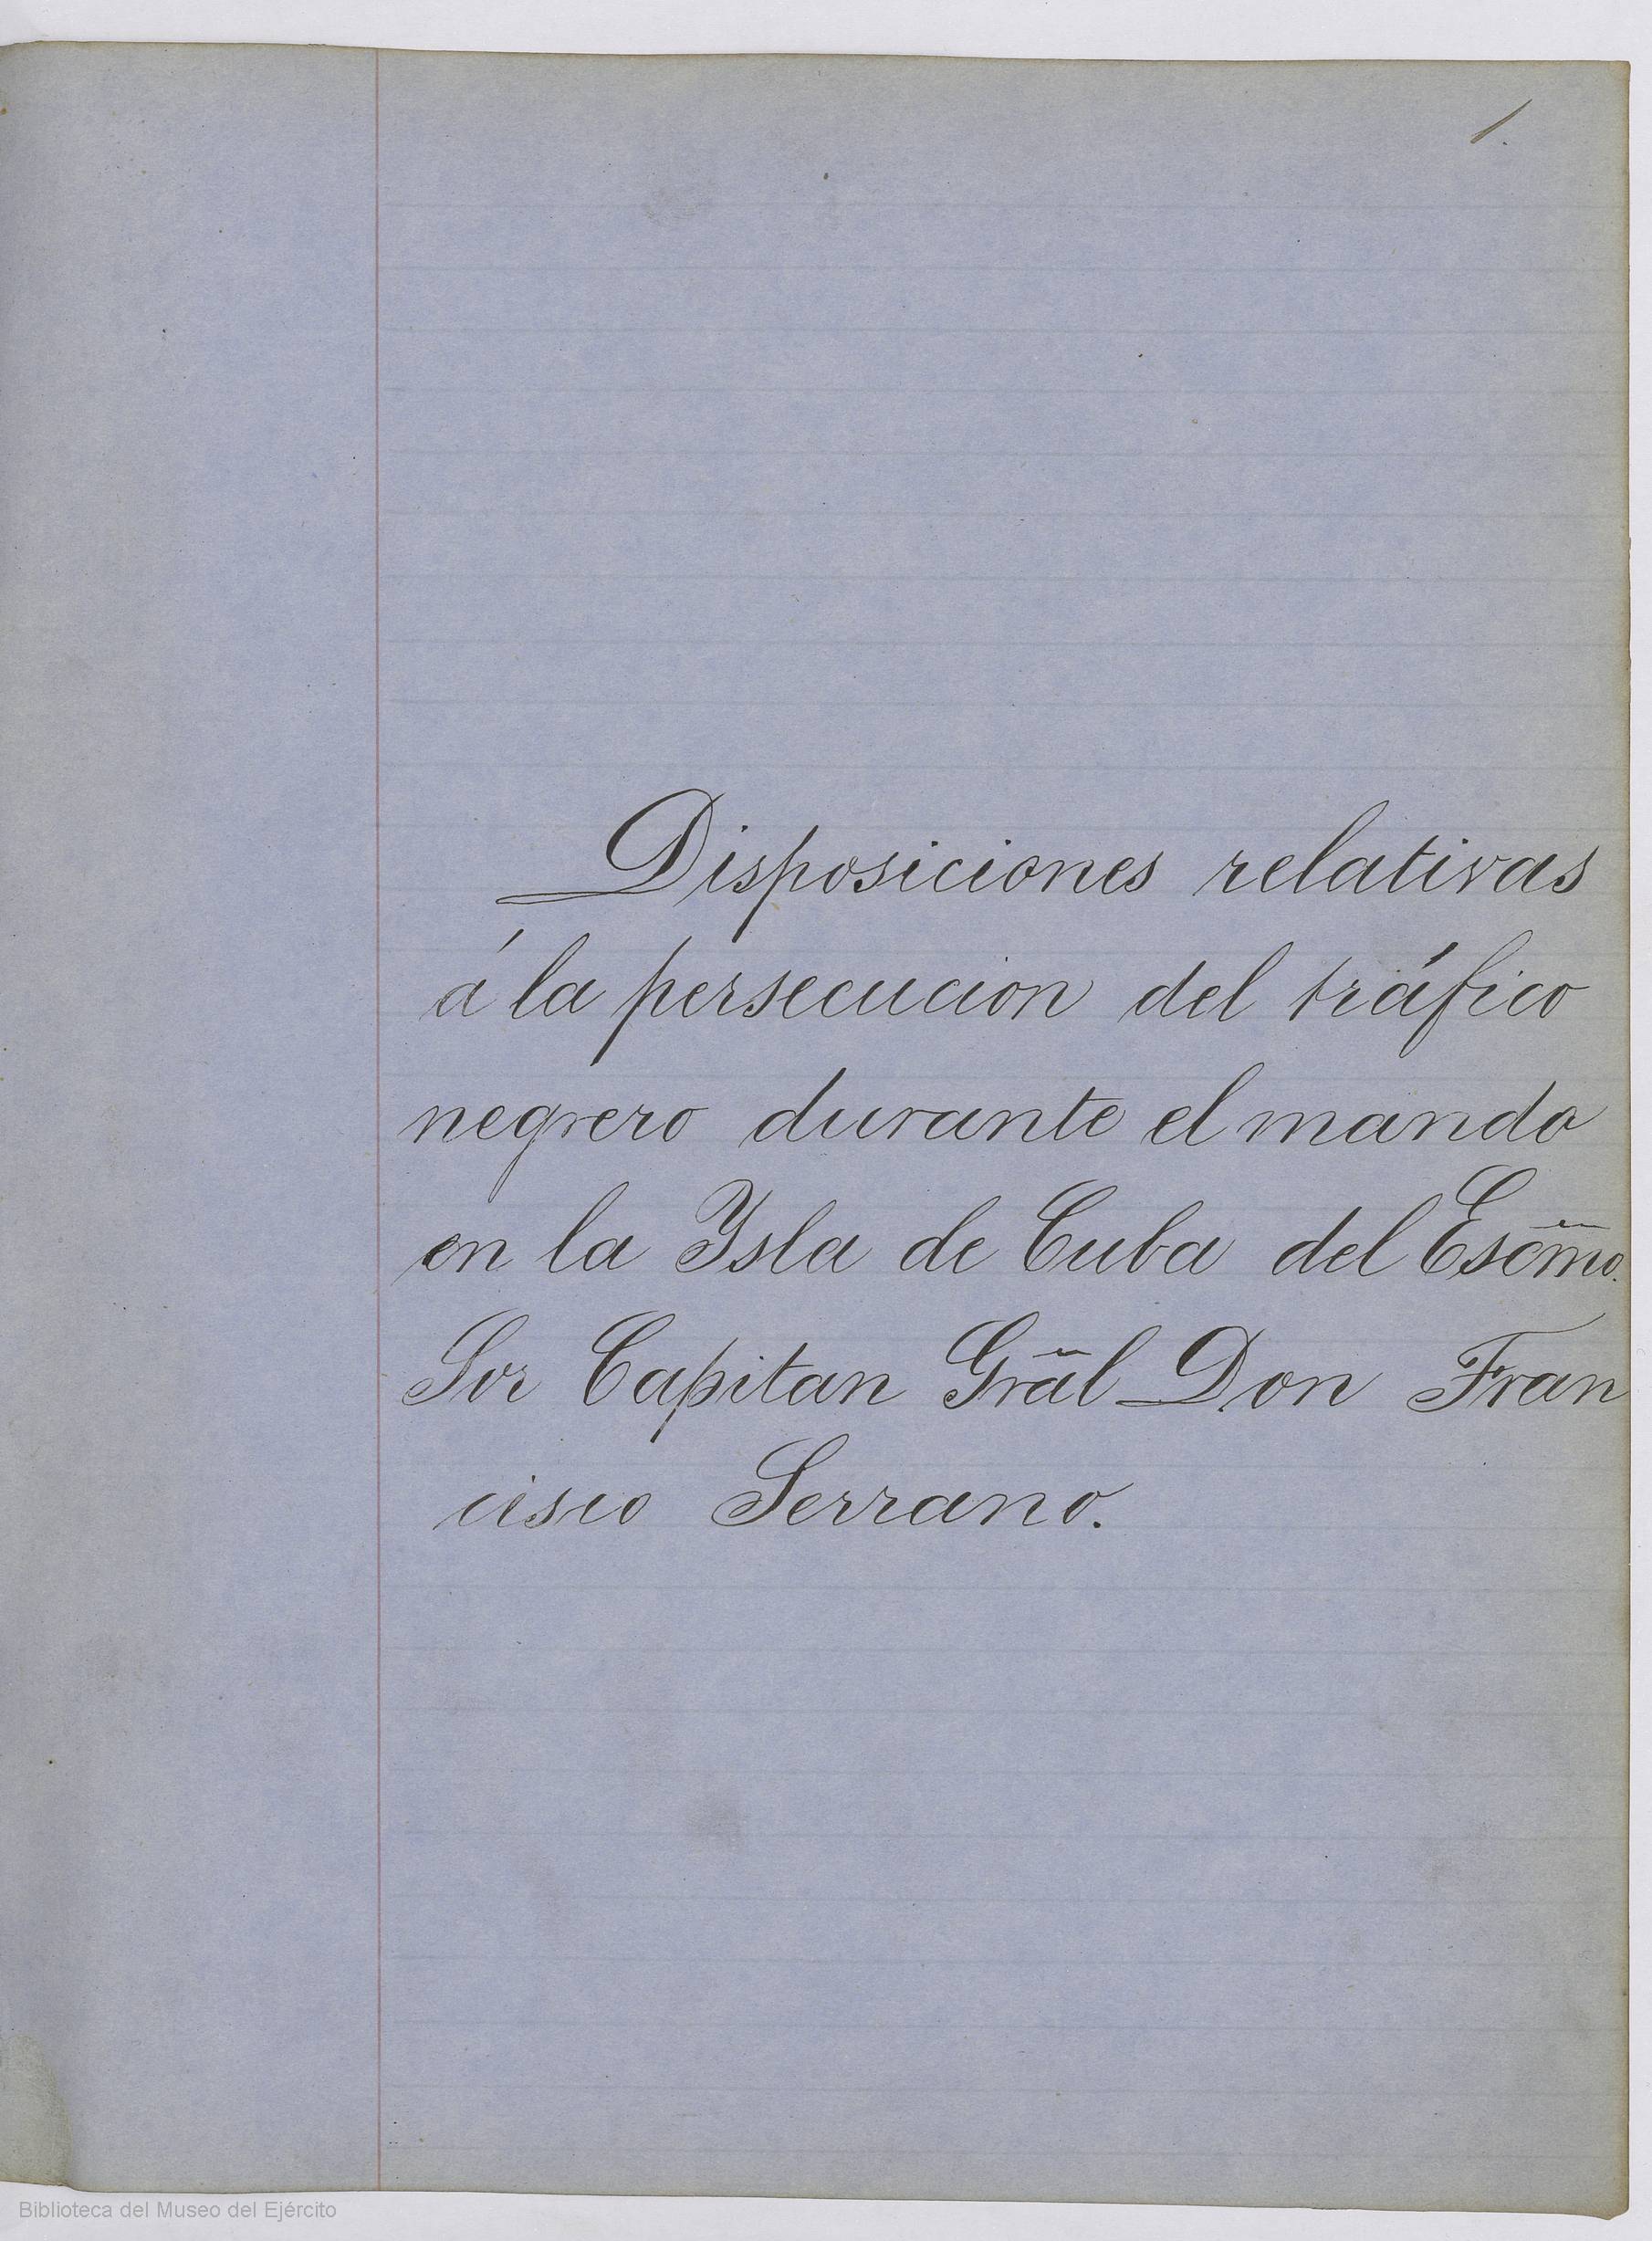 1.
Disposiciones relativas
á la persecucion del tráfico
negrero durante el mando
en la Ysla de Cuba del Escm̃o.
Sor Capitan Grãl Don Fran
cisco Serrano.
Biblioteca del Museo del Ejército